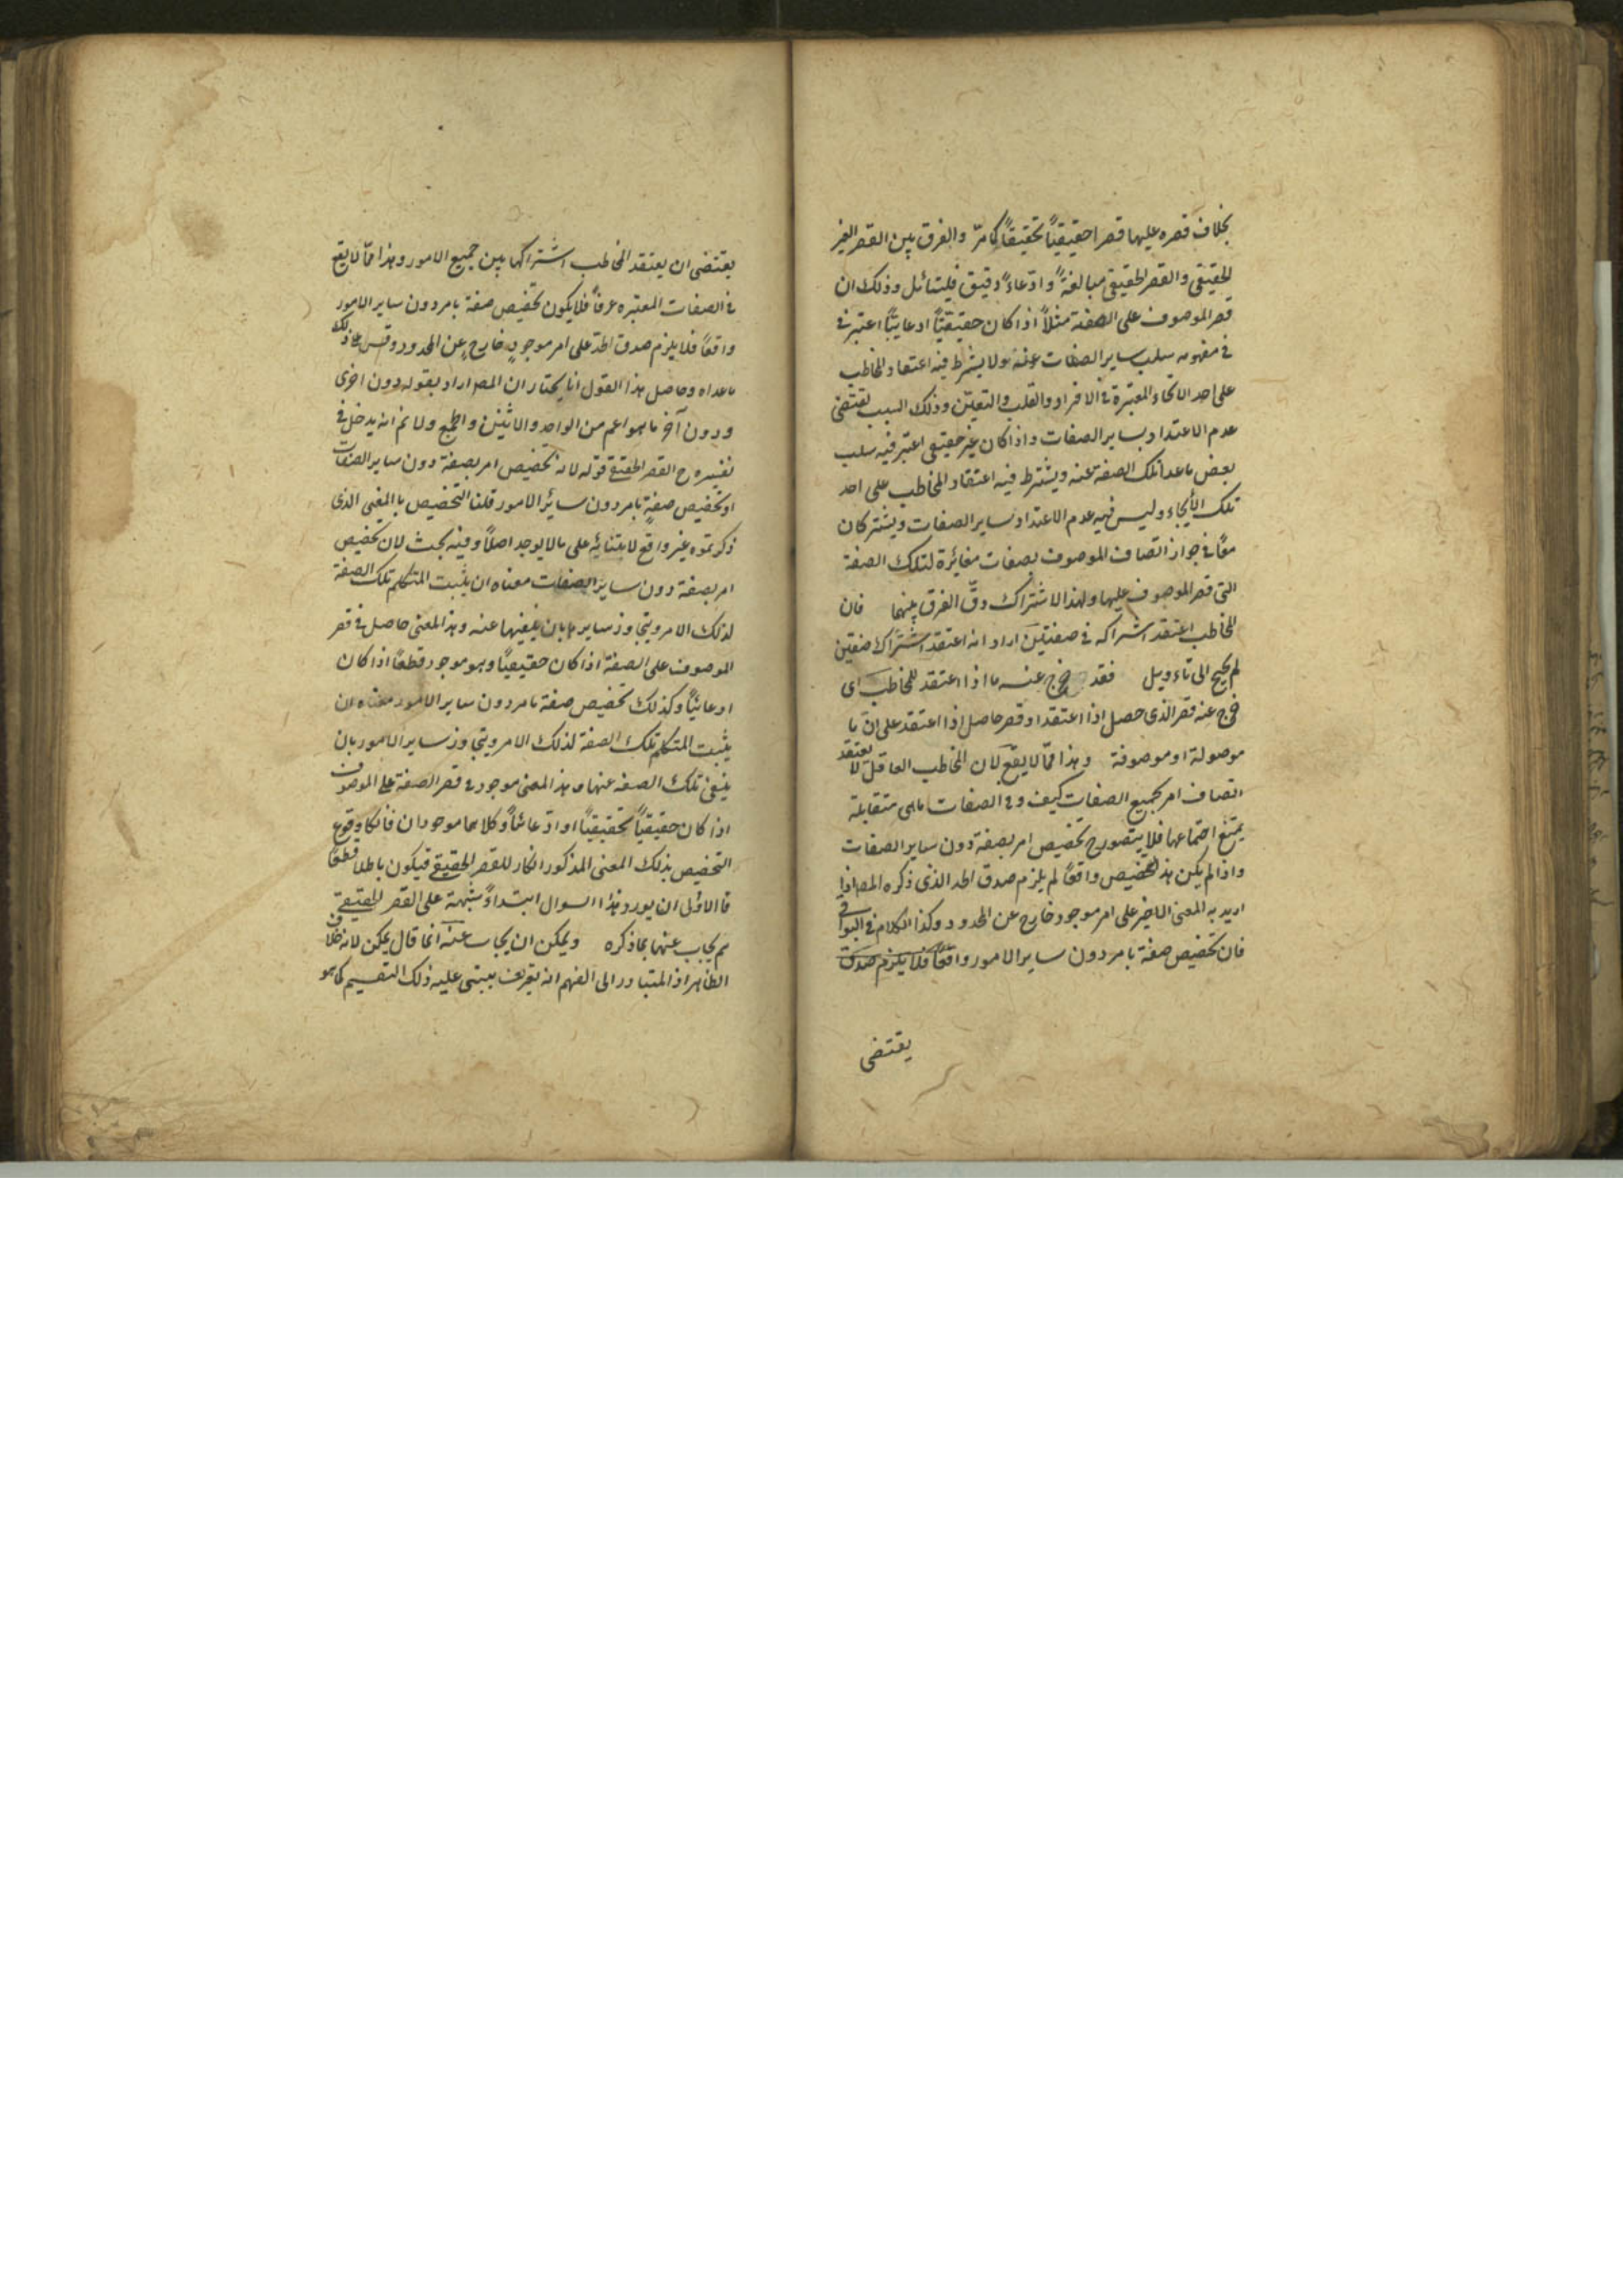 بخلاف قصره عليها قصرا حقيقيّاً تحقيقاً كما مرّ والفرق بين القصر الغير
الحقيقى والقصر الحقيقى مبالغةً وادّعاءً دقيق فليتأمل وذلك ان
قصر الموصوف على الصفة مثلاً اذا كان حقيقيّاً ادعايّاً اعتبر فى
فى مفهومه سلب ساير الصفات عنه ولا يشترط فيه اعتقاد المخاطب
على احد الانحاء المعتبرة فى الافراد والقلب والتعيين وذلك السبب يقتضى
عدم الاعتداد بساير الصفات واذا كان غير حقيقى اعتبر فيه سلب
بعض ما عدا تلك الصفة عنه ويشترط فيه اعتقاد المخاطب على احد
تلك الأنحاء وليس فيه عدم الاعتداد بساير الصفات ويشتركان
معاً فى جواز اتصاف الموصوف بصفات مغائرة لتلك الصفة
التى قصر الموصوف عليها ولهذا الاشتراك دقّ الفرق بينهما فان
المخاطب اعتقد اشتراكه فى صفتين اراد انه اعتقد اشتراك صفتين
لم يحتج الى تأويل فقد خرج عنه ما اذا اعتقد المخاطب اى
خرج عنه قصر الذى حصل اذا اعتقد او قصر حاصل اذا اعتقد على ان ما
موصولة او موصوفة وهذا ممّا لا يقع لان المخاطب العاقل لا يعتقد
اتصاف امر بجميع الصفات كيف وفى الصفات ما هى متقابلة
يمتنع اجتماعها فلا يتصور ح تخصيص امر بصفة دون ساير الصفات
واذا لم يكن هذا التخصيص واقعاً لم يلزم صدق الحد الذى ذكره المصـ اذا
اريد به المعنى الاخير على امر موجود خارج عن المحدود وكذا الكلام فى البواقى
فان تخصيص صفة بامر دون ساير الامور واقعاً فلا يلزم صدق
يقتضى
يقتضى ان يعتقد المخاطب اشتراكها بين جميع الامور وهذا ممّا لا يقع
فى الصفات المعتبره عرفاً فلا يكون تخصيص صفة بامر دون ساير الامور
واقعاً فلا يلزم صدق الحد على امر موجود خارج عن المحدود وقس على ذلك
ما عداه وحاصل هذا القول انا نختار ان المصـ اراد بقوله دون اخرى
ودون آخر ما هو اعم من الواحد والاثنين والجمع ولا نم انه يدخل فى
تفسيره ح القصر الحقيقى قوله لانه تخصيص امر بصفة دون ساير الصفات
او تخصيص صفةٍ بامر دون سائر الامور قلنا التخصيص بالمعنى الذى
ذكرتموه غير واقع لابتنائه على ما لا يوجد اصلاً وفيه بحث لان تخصيص
امر بصفة دون ساير الصفات معناه ان يثبت المتكلم تلك الصفة
لذلك الامر ويتجاوز سايرها بان ينفيها عنه وهذا المعنى حاصل فى قصر
الموصوف على الصفة اذا كان حقيقيّاً وهو موجود قطعاً اذا كان
ادعائيّاً وكذلك تخصيص صفة بامر دون ساير الامور معناه ان
يثبت المتكلم تلك الصفة لذلك الامر ويتجاوز ساير الامور بان
ينفى تلك الصفة عنها وهذا المعنى موجود فى قصر الصفة على الموصوف
اذا كان حقيقيّاً تحقيقيّاً او ادّعائيّاً وكلاهما موجودان فانكار وقوع
التخصيص بذلك المعنى المذكور انكار للقصر الحقيقى فيكون باطلا قطعاً
فالاولى ان يورد هذا السوال ابتداءً شبهة على القصر الحقيقى
ثم يجاب عنها بما ذكره ويمكن ان يجاب عنه انما قال يمكن لانه خلاف
الظاهر اذ المتبادر الى الفهم انه تعريف يبتنى عليه ذلك التقسيم كما هو